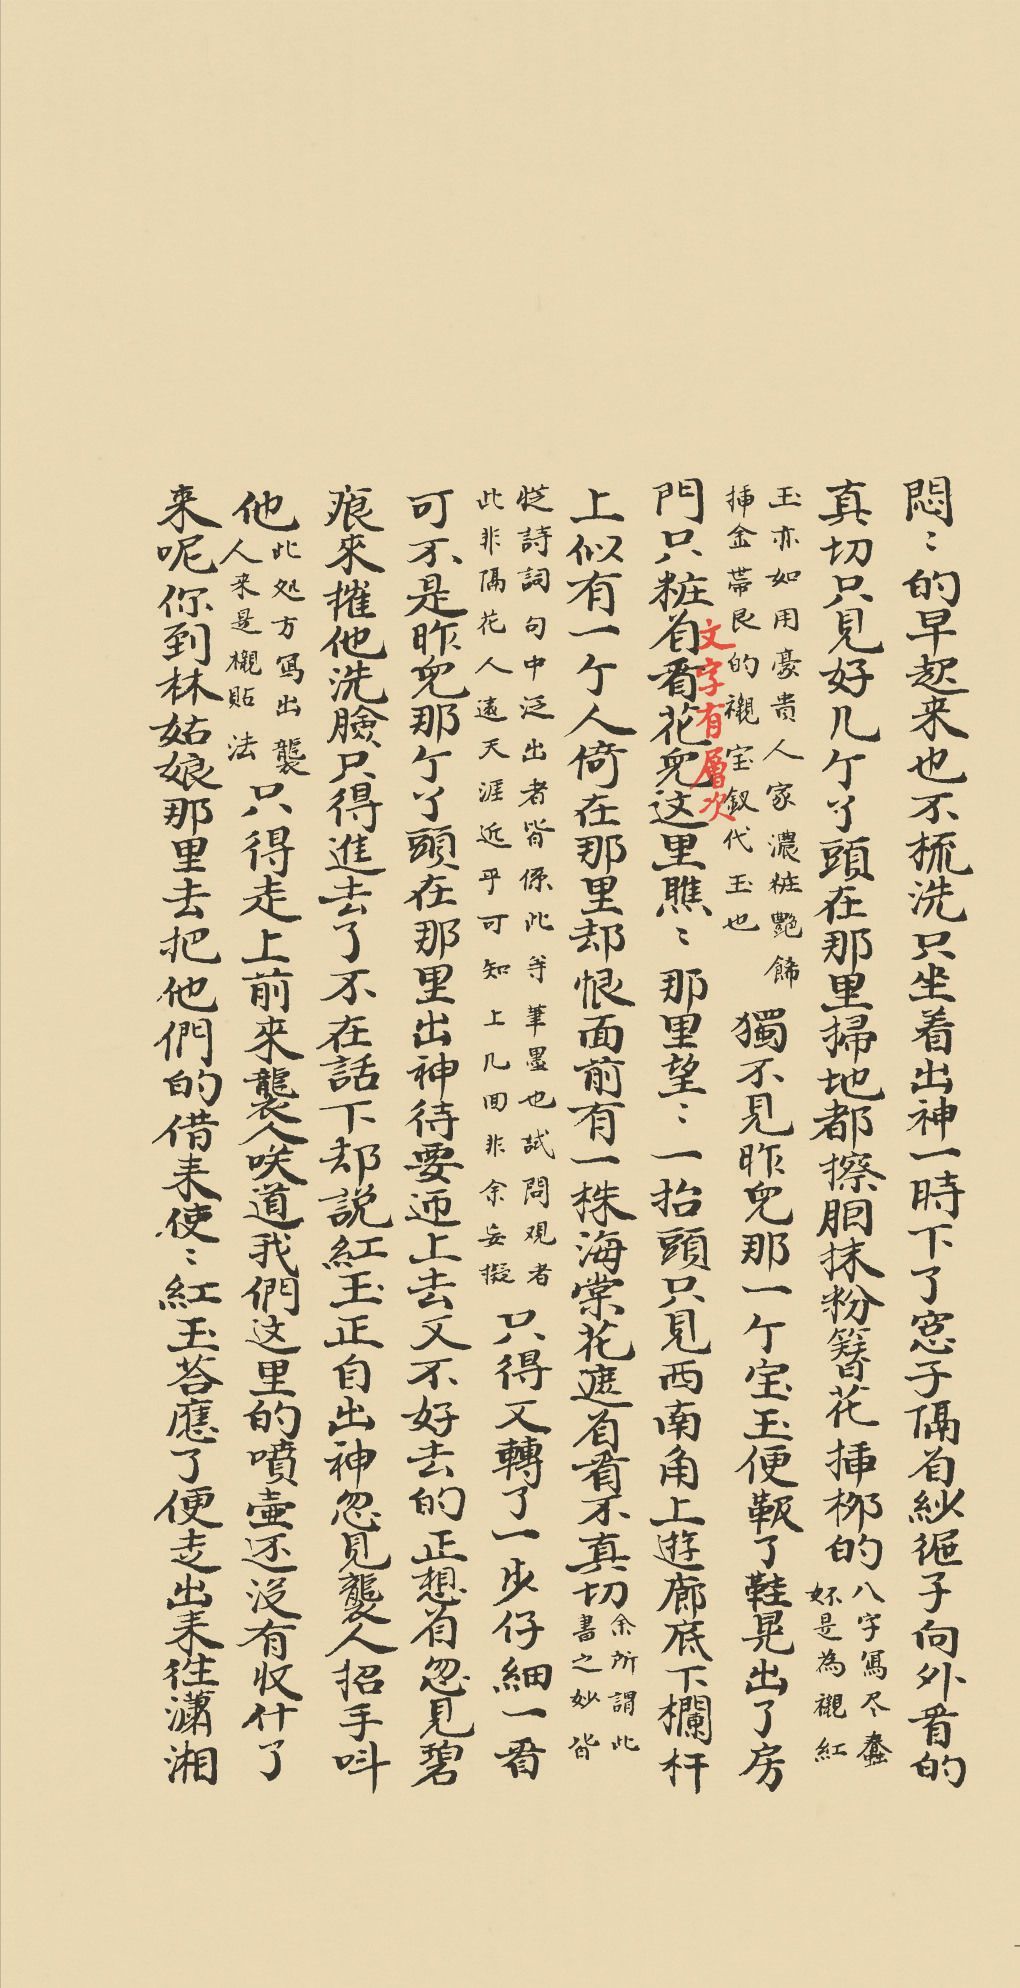 悶〻的早起来也不梳洗只坐着出神一時下了窓子隔着紗𡲕子向外看的
真切只見好几个丫頭在那里掃地都擦胭抹粉簪花挿柳的
八字寫尽蠢
妚是為襯紅
玉亦如用豪貴人家濃粧艷飾
挿金帶艮的襯宝釵代玉也
獨不見昨兒那一个宝玉便靸了鞋晃出了房
文字有層次
門只粧着看花兒这里瞧〻那里望〻一抬頭只見西南角上遊廊底下欄杆
上似有一个人倚在那里却恨面前有一株海棠花遮着看不真切
余所謂此
書之妙皆
從詩詞句中泛出者皆係此等筆墨也試問观者
此非隔花人遠天涯近乎可知上几回非余妄擬
只得又轉了一步仔細一看
可不是昨兒那个丫頭在那里出神待要迊上去又不好去的正想着忽見碧
痕來摧他洗臉只得進去了不在話下却説紅玉正自出神忽見襲人招手呌
他
此処方寫出襲
人来是襯貼法
只得走上前来襲人咲道我們这里的噴壷还没有收什了
来呢你到林姑娘那里去把他們的借来使〻紅玉荅應了便走出来徃瀟湘